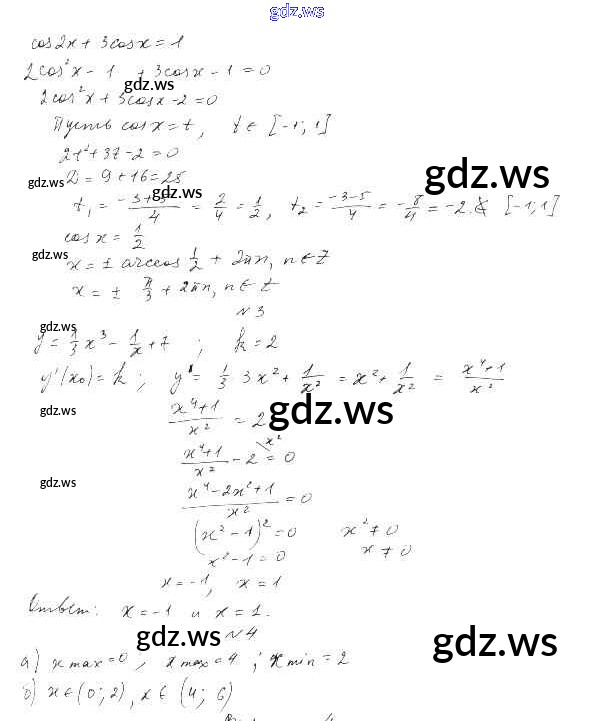 gdz.ws
cos2x + 3cosx = 1
2cos²x - 1 + 3cosx - 1 = 0
gdz.ws
2cos²x + 3cosx - 2 = 0
Пусть cosx = t, t ∈ [-1; 1]
2t² + 3t - 2 = 0
gdz.ws
D = 9 + 16 = 25
gdz.ws
gdz.ws
t₁ = (-3+5)/4 = 2/4 = 1/2, t₂ = (-3-5)/4 = -8/4 = -2 ∉ [-1; 1]
cosx = 1/2
gdz.ws
x = ± arccos 1/2 + 2πn, n ∈ Z
x = ± π/3 + 2πn, n ∈ Z
№3
gdz.ws
y = 1/3 x³ - 1/x + 7 ; k = 2
y'(x₀) = k ; y' = 1/3 3x² + 1/x² = x² + 1/x² = (x⁴+1)/x²
gdz.ws
gdz.ws
(x⁴+1)/x² = 2
(x⁴+1)/x² - 2 \x² = 0
gdz.ws
(x⁴ - 2x² + 1)/x² = 0
(x² - 1)² = 0 x² ≠ 0
x² - 1 = 0 x ≠ 0
x = -1, x = 1
Ответ: x = -1 и x = 1.
gdz.ws
№4
gdz.ws
а) x max = 0, x max = 4 ; x min = 2
б) x ∈ (0; 2), x ∈ (4; 6)
gdz.ws